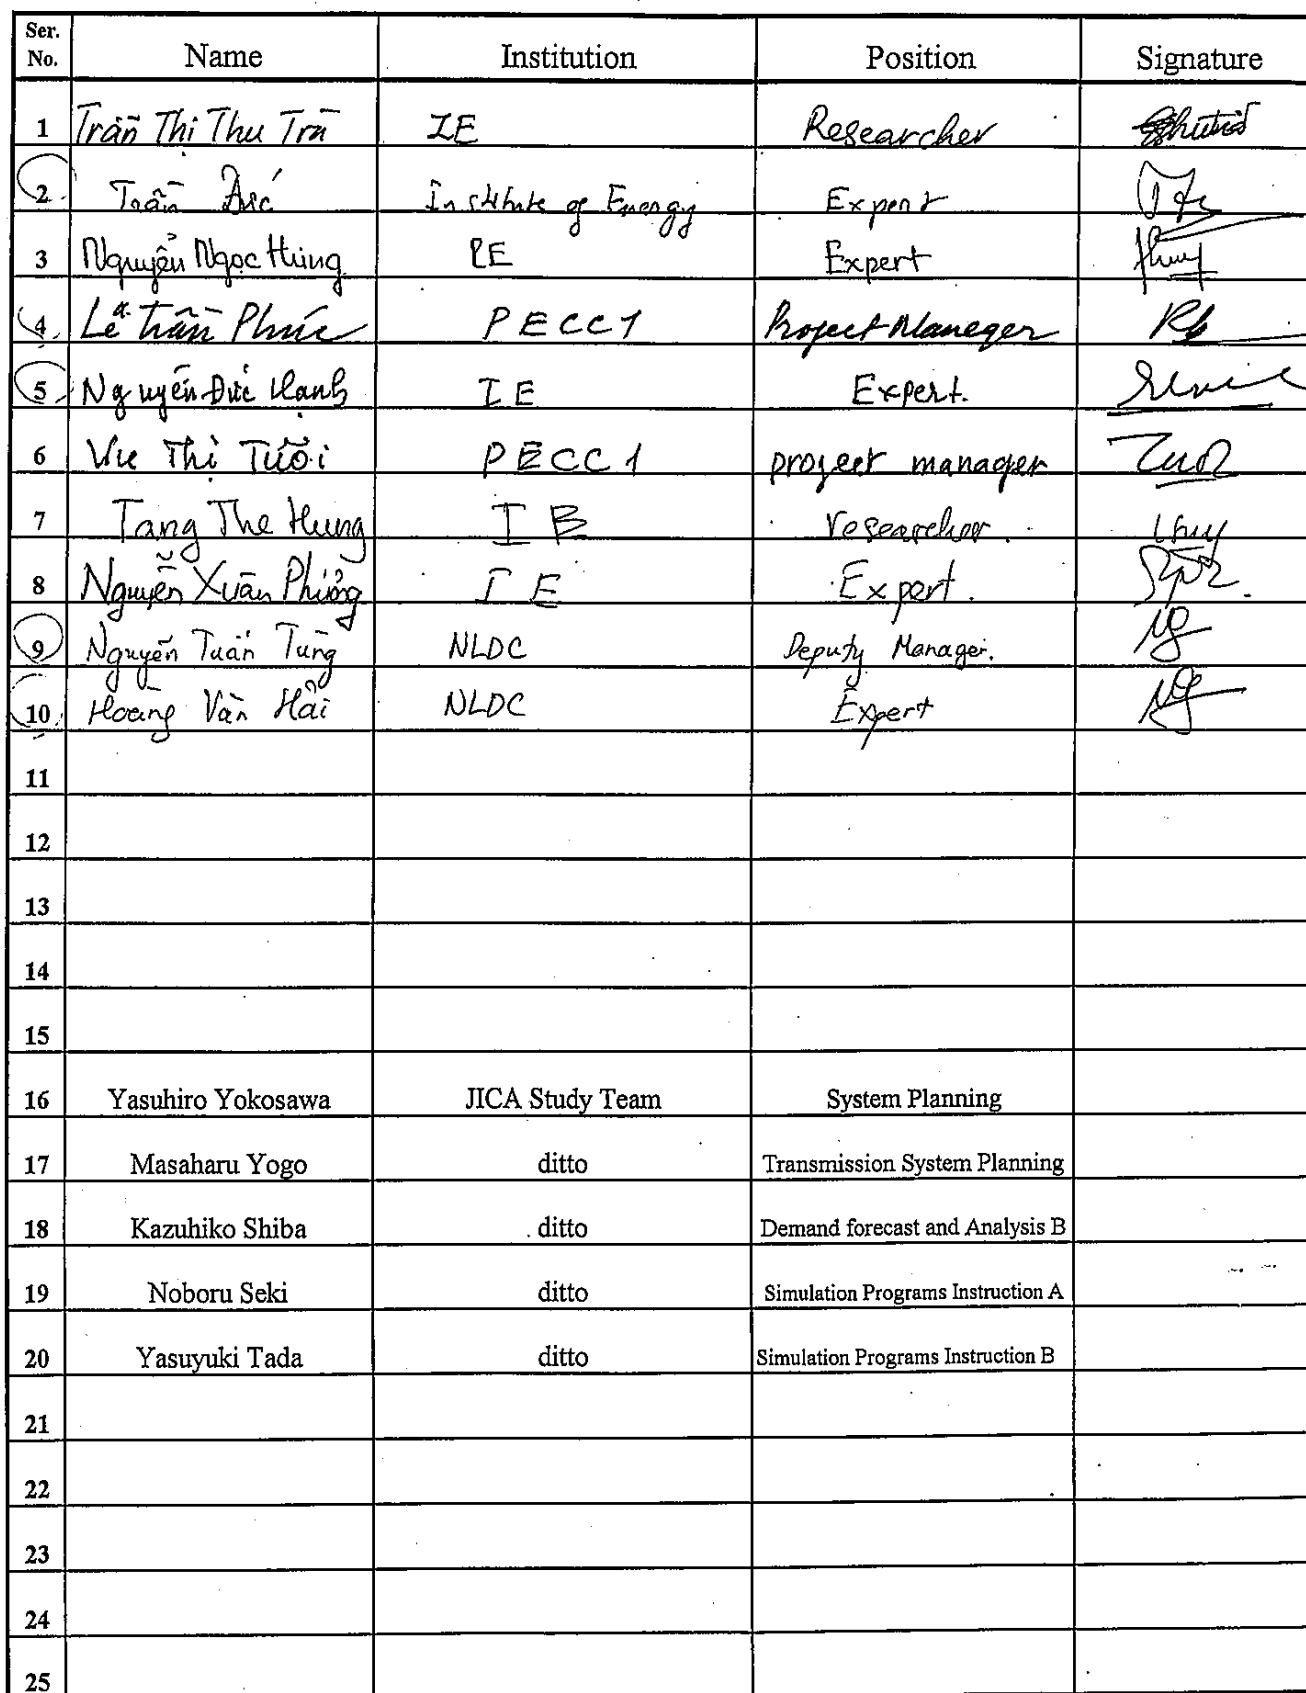 Ser. No. Name Institution Position Signature
1 Trần Thị Thu Trà IE Researcher
2 Trần Đức Institute of Energy Expert
3 Nguyễn Ngọc Hưng IE Expert
4 Lê Trần Phúc PECC1 Project Maneger
5 Nguyễn Đức Hạnh IE Expert.
6 Vũ Thị Tươi PECC1 project manager
7 Tang The Hung IE researcher.
8 Nguyễn Xuân Phương IE Expert.
9 Nguyễn Tuấn Tùng NLDC Deputy Manager.
10 Hoàng Văn Hải NLDC Expert
11
12
13
14
15
16 Yasuhiro Yokosawa JICA Study Team System Planning
17 Masaharu Yogo ditto Transmission System Planning
18 Kazuhiko Shiba ditto Demand forecast and Analysis B
19 Noboru Seki ditto Simulation Programs Instruction A
20 Yasuyuki Tada ditto Simulation Programs Instruction B
21
22
23
24
25